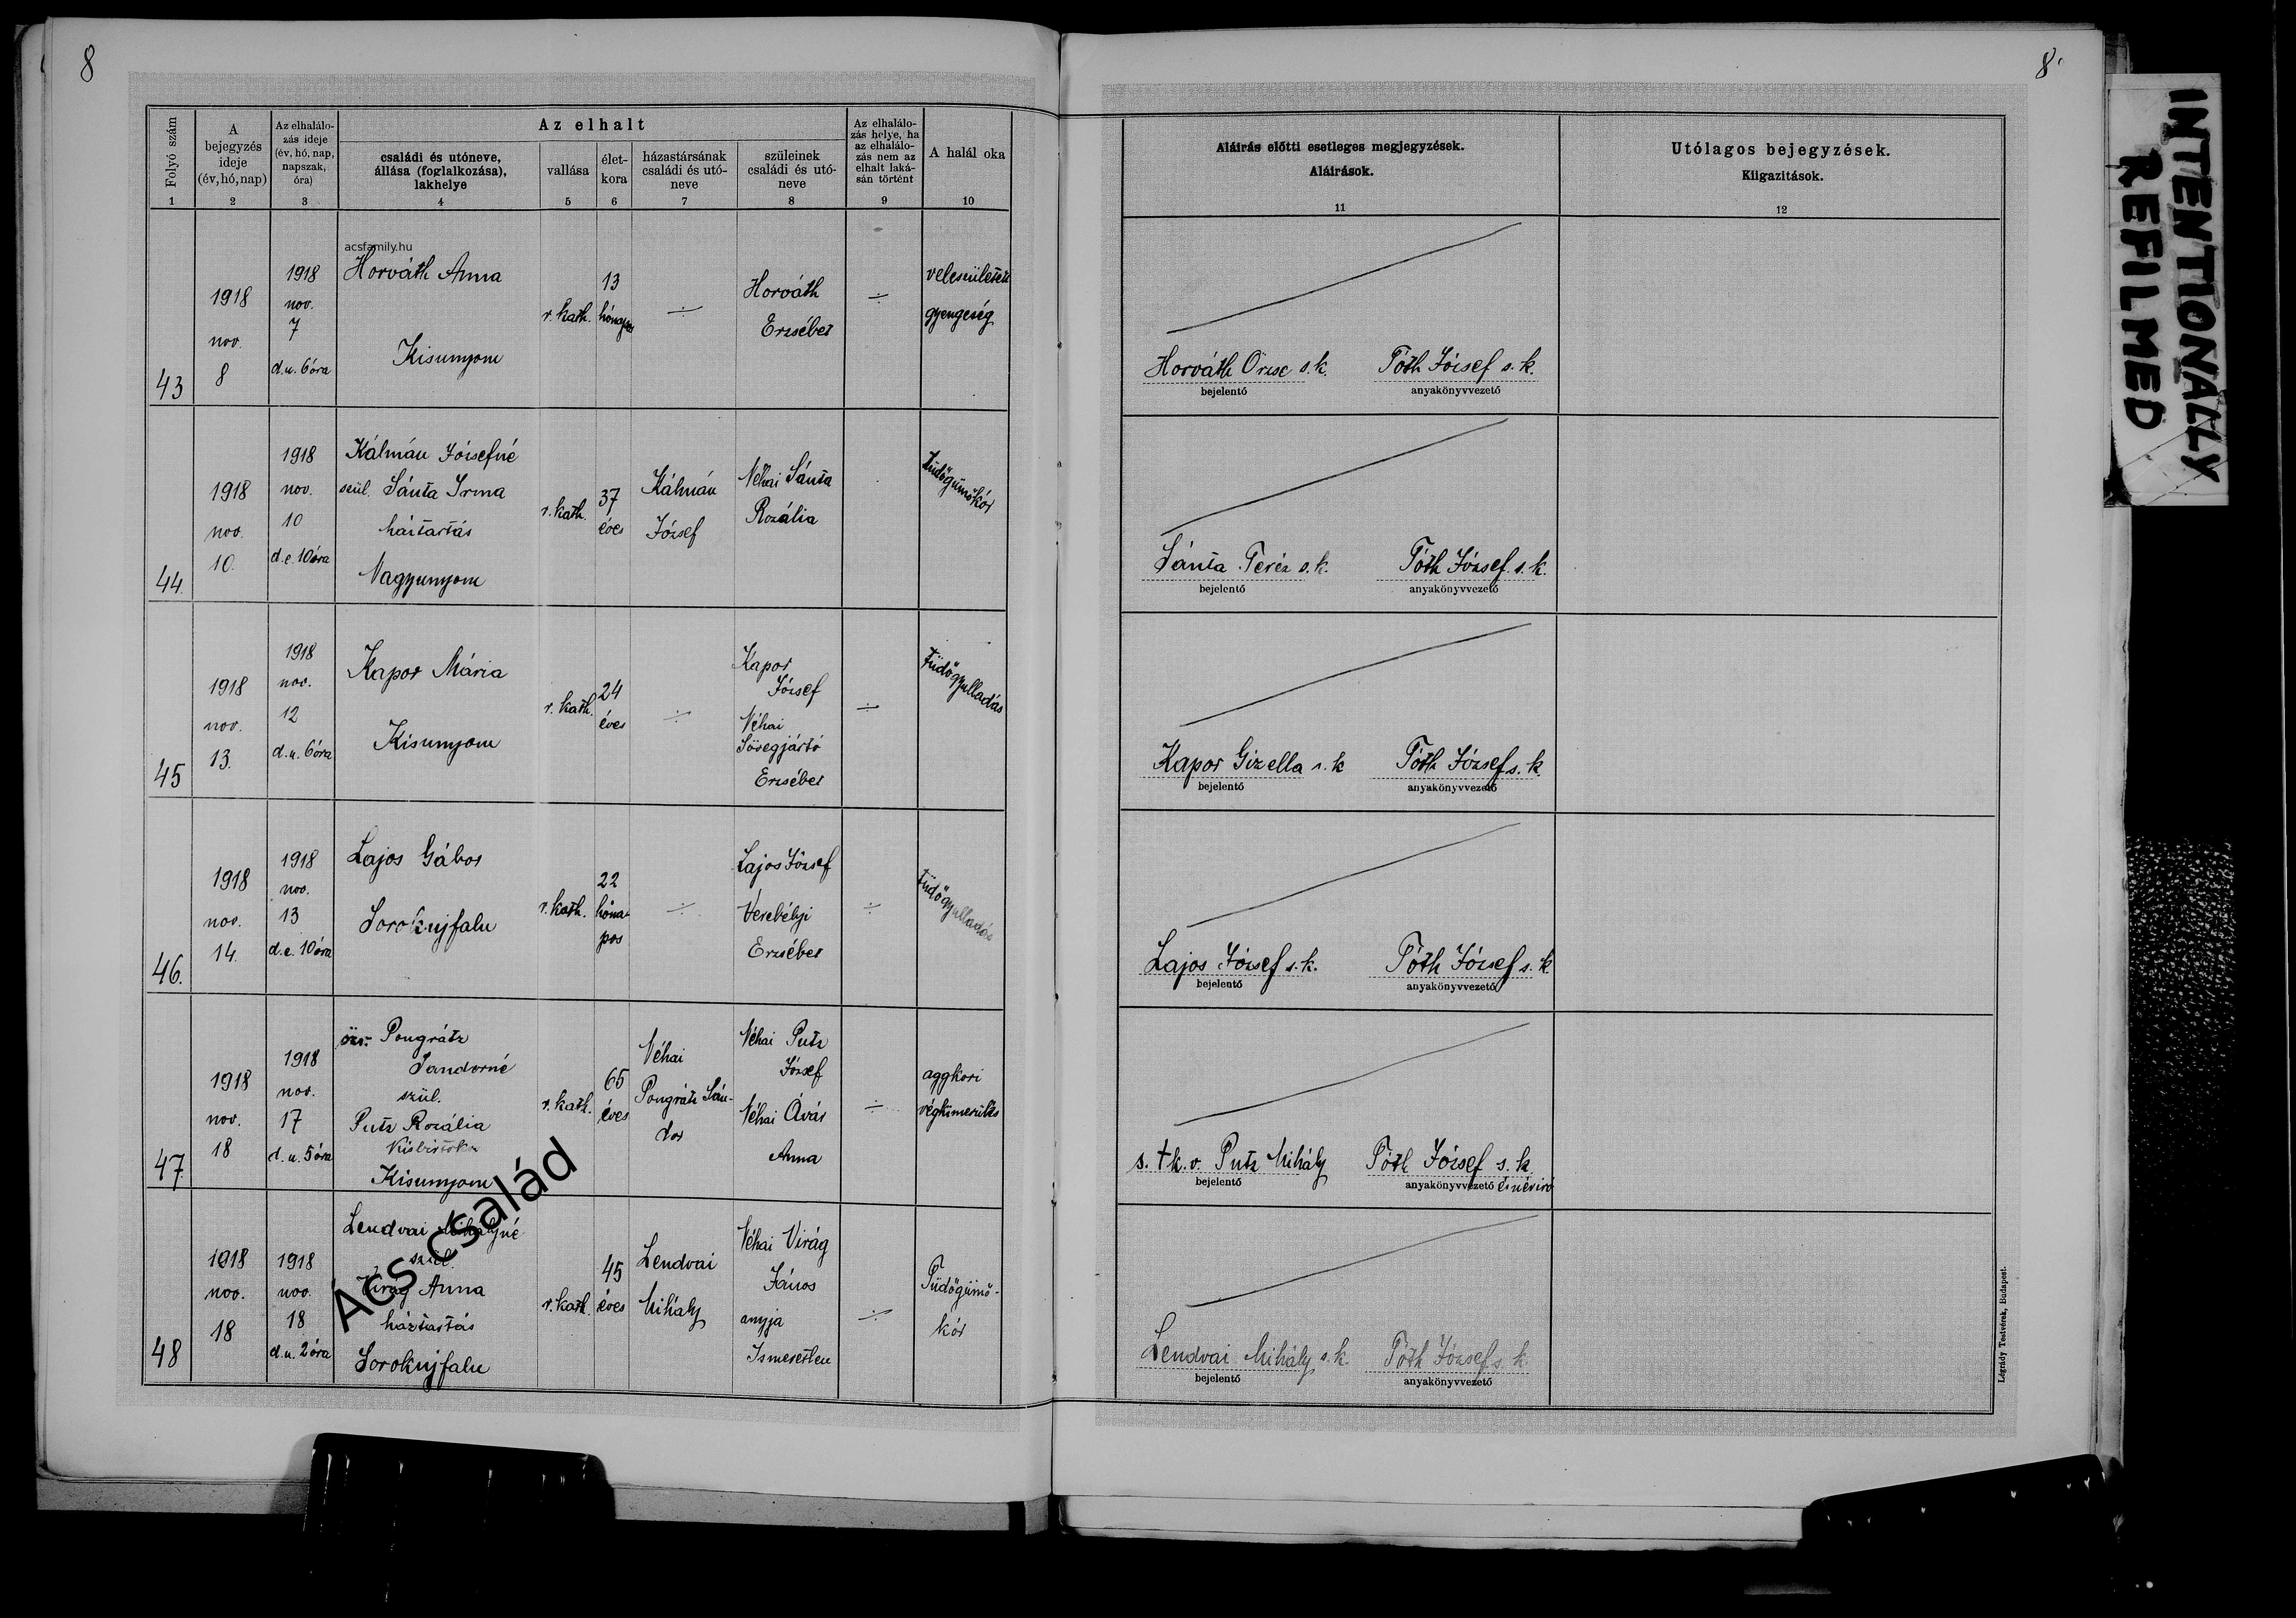 8
8
INTENTIONALLY
REFILMED
Folyó szám
A
bejegyzés
ideje
(év, hó, nap)
Az elhalálo-
zás ideje
(év, hó, nap,
napszak,
óra)
Az elhalt
családi és utóneve,
állása (foglalkozása),
lakhelye
vallása
élet-
kora
házastársának
családi és utó-
neve
szüleinek
családi és utó-
neve
Az elhalálo-
zás helye, ha
az elhalálo-
zás nem az
elhalt laká-
sán történt
A halál oka
Aláírás előtti esetleges megjegyzések.
Aláírások.
Utólagos bejegyzések.
Kiigazítások.
1 2 3 4 5 6 7 8 9 10 11 12
43
1918
nov.
8
1918
nov.
7
d.u. 6 óra
acsfamily.hu
Horváth Anna
Kisunyom
r. kath.
13
hónapos
÷
Horváth
Erzsébet
÷
veleszületett
gyengeség
Horváth Örzse s.k. Tóth József s.k.
bejelentő anyakönyvvezető
44.
1918
nov.
10.
1918
nov.
10
d.e. 10 óra
Kálmán Józsefné
szül. Sánta Irma
háztartás
Nagyunyom
r. kath.
37
éves
Kálmán
József
Néhai Sánta
Rozália
tüdőgümőkór
Sánta Teréz s.k. Tóth József s.k.
bejelentő anyakönyvvezető
45
1918
nov.
13.
1918
nov.
12
d.u. 6 óra
Kapor Mária
Kisunyom
r. kath.
24
éves
÷
Kapor
József
Néhai
Erzsébet
÷
tüdőgyulladás
Kapor Gizella s.k Tóth József s.k.
bejelentő anyakönyvvezető
46.
1918
nov.
14.
1918
nov.
13
d.e. 10 óra
Lajos Gábor
Sorokujfalu
r. kath.
22
hóna-
pos
÷
Lajos József
Verebélyi
Erzsébet
÷
tüdőgyulladás
Lajos József s.k. Tóth József s.k.
bejelentő anyakönyvvezető
47.
1918
nov.
18
1918
nov.
17
d.u. 5 óra
özv. Pongrátz
Sandorné
szül.
Putz Rozália
Kisunyom
r. kath.
65
éves
Néhai
Pongrátz Sán-
dor
Néhai Putz
József
Néhai Ávár
Anna
÷
aggkori
végkimerülés
s. †k. v. Putz Mihály Tóth József s.k.
bejelentő anyakönyvvezető és névíró
48
1918
nov.
18
1918
nov.
18
d.u. 2 óra
Lendvai Mihályné
szül.
Virág Anna
háztartás
Sorokujfalu
r. kath.
45
éves
Lendvai
Mihály
Néhai Virág
János
anyja
Ismeretlen
÷
Tüdőgümő-
kór
Lendvai Mihály s.k. Tóth József s.k.
bejelentő anyakönyvvezető
Ács család
Légrády Testvérek, Budapest.